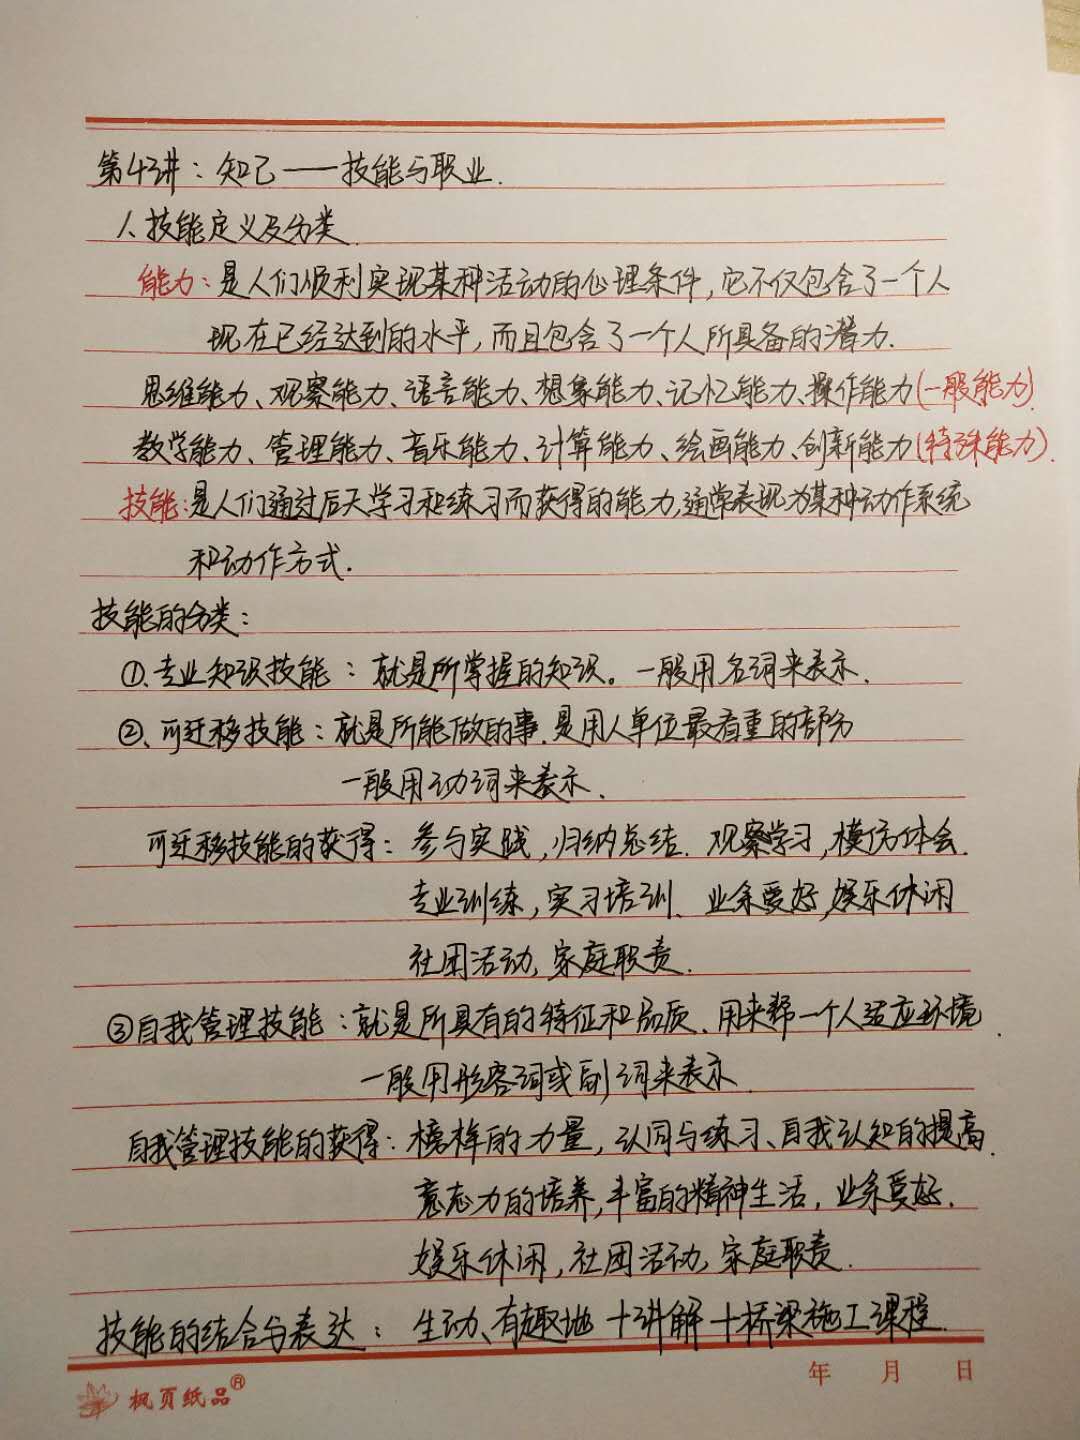 第4讲：知己——技能与职业.
1、技能定义及分类
能力：是人们顺利实现某种活动的心理条件，它不仅包含了一个人
现在已经达到的水平，而且包含了一个人所具备的潜力.
思维能力、观察能力、语言能力、想象能力、记忆能力、操作能力(一般能力).
数学能力、管理能力、音乐能力、计算能力、绘画能力、创新能力(特殊能力).
技能：是人们通过后天学习和练习而获得的能力，通常表现为某种动作系统
和动作方式.
技能的分类：
①、专业知识技能：就是所掌握的知识。一般用名词来表示.
②、可迁移技能：就是所能做的事.是用人单位最看重的部分
一般用动词来表示.
可迁移技能的获得：参与实践，归纳总结.观察学习，模仿体会.
专业训练，实习培训、业余爱好，娱乐休闲
社团活动，家庭职责.
③自我管理技能：就是所具有的特征和品质、用来帮一个人适应环境.
一般用形容词或副词来表示.
自我管理技能的获得：榜样的力量，认同与练习、自我认知的提高.
意志力的培养，丰富的精神生活，业余爱好.
娱乐休闲，社团活动，家庭职责.
技能的结合与表达：生动、有趣地＋讲解＋桥梁施工课程.
枫页纸品® 年 月 日